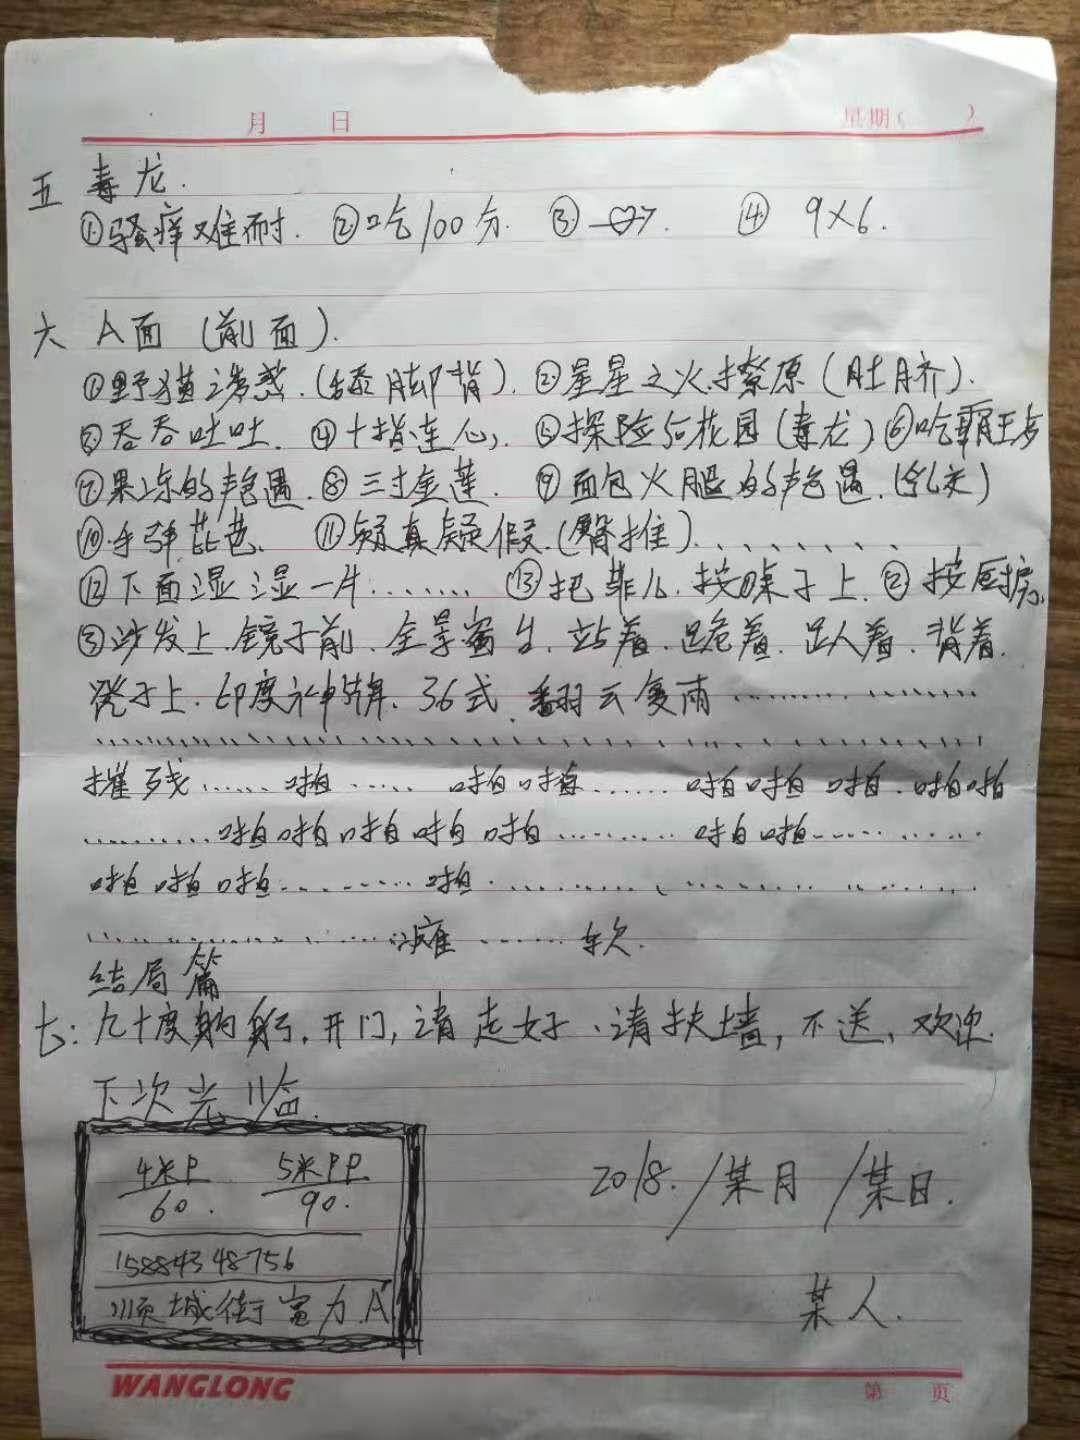 月 日 星期( )
五 毒龙.
①骚痒难耐. ②吃100分. ③ ④ 9×6.
六 A面 (前面).
①野猫诱惑.(舔脚背). ②星星之火.撩原(肚脐).
③吞吞吐吐. ④十指连心, ⑤探险后花园(毒龙) ⑥吃霸王
⑦果冻的艳遇. ⑧三寸金莲. ⑨面包火腿的艳遇.(乳交)
⑩手弹琵琶. ⑪疑真疑假.(臀推).......
⑫下面湿湿一片....... ⑬把菲儿.按桌子上. ② 按厨房.
③沙发上.镜子前.全景 生.站着.跪着. 着.背着.
凳子上.印度神 .36式.翻云复雨............
摧残...... 啪..... 啪啪...... 啪啪 啪.啪啪
.........啪啪啪啪啪......... 啪啪.........
啪啪啪........啪...............
............瘫......软.
结局篇
七: 九十度鞠躬.开门,请走好、请扶墙,不送,欢迎.
下次光临.
4米P 5米PP
60. 90.
15884348756
顺城街富力A
2018./某月/某日.
某人.
WANGLONG 第 页